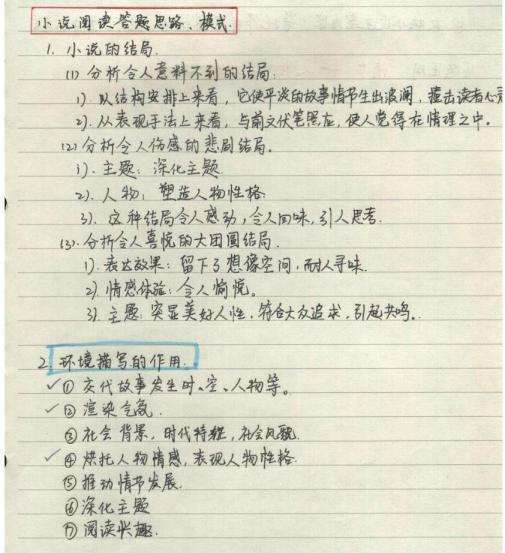 小说阅读答题思路、模式
1. 小说的结局.
(1) 分析令人意料不到的结局:
1). 从结构安排上来看，它使平淡的故事情节生出波澜，撞击读者心灵
2). 从表现手法上来看，与前文伏笔照应，使人觉得在情理之中。
(2) 分析令人伤感的悲剧结局。
1). 主题: 深化主题.
2). 人物: 塑造人物性格.
3). 这种结局令人感动，令人回味，引人思考.
(3). 分析令人喜悦的大团圆结局.
1). 表达效果: 留下了想像空间，耐人寻味.
2). 情感体验: 令人愉悦。
3). 主题: 突显美好人性，符合大众追求，引起共鸣.
2. 环境描写的作用.
✓① 交代故事发生时、空、人物等。
✓② 渲染气氛.
③ 社会背景，时代特征，社会风貌.
✓④ 烘托人物情感，表现人物性格.
⑤ 推动情节发展.
⑥ 深化主题
⑦ 阅读兴趣.